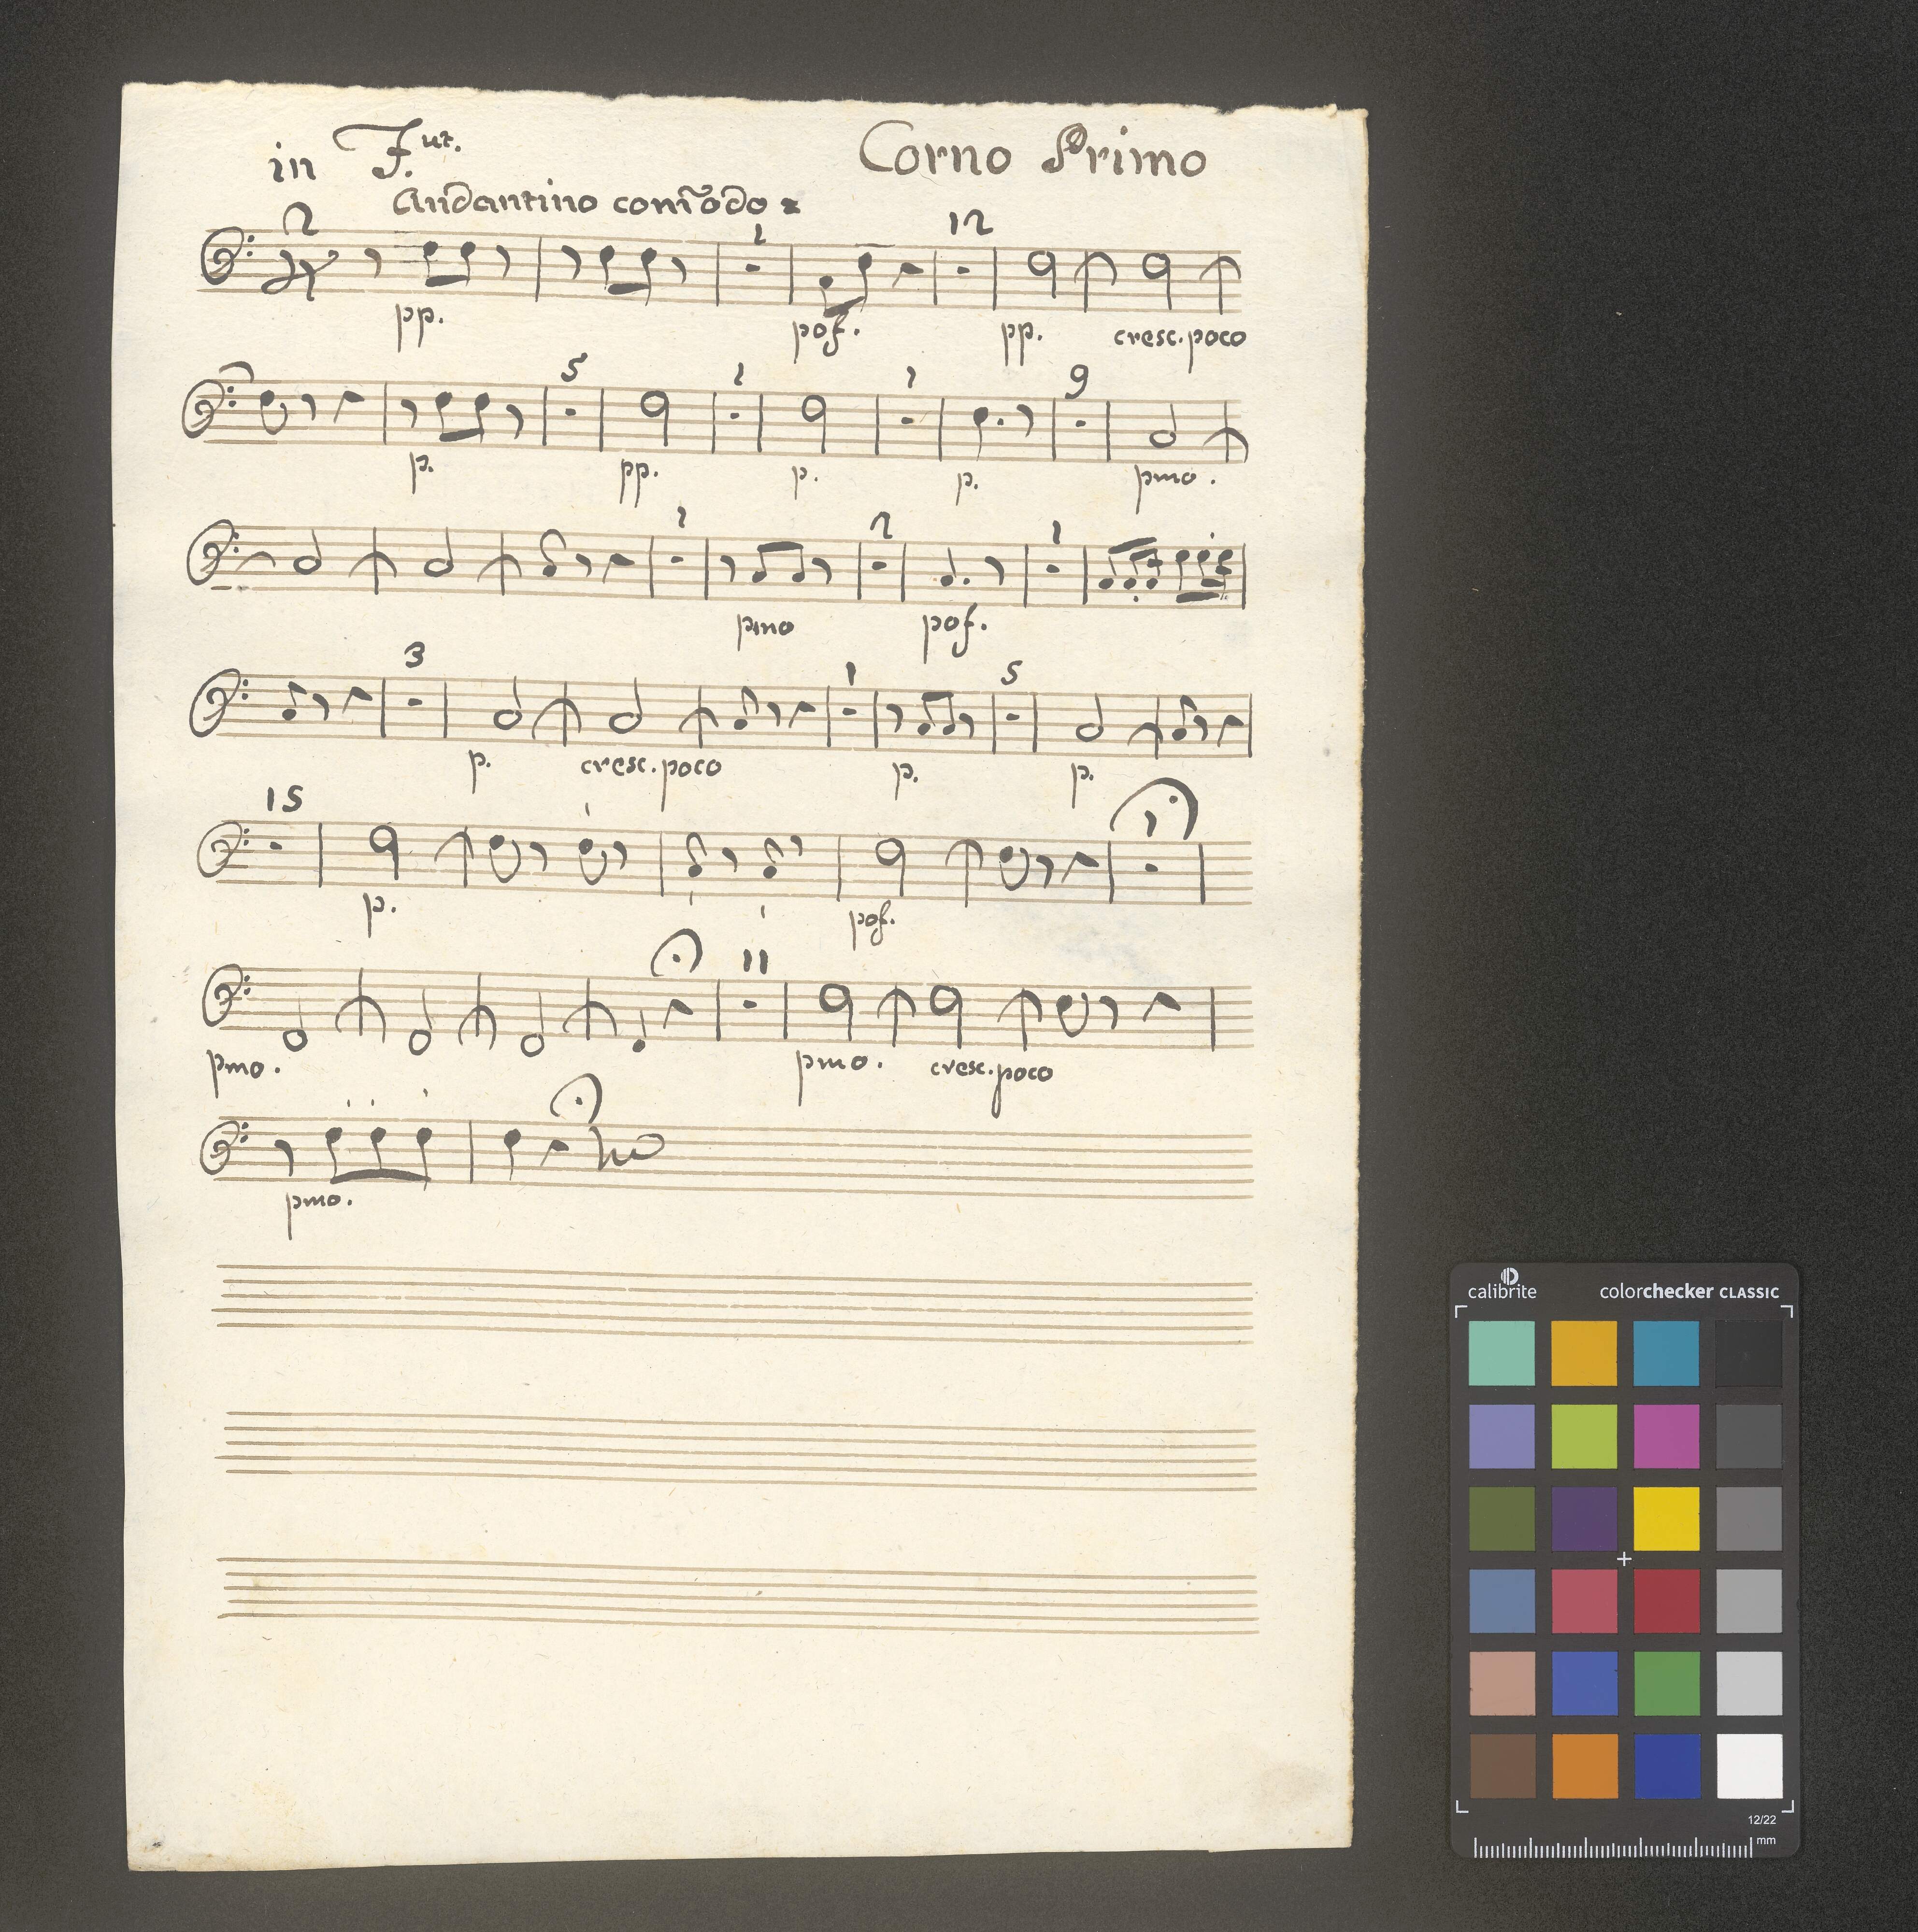 in F.ut. Corno Primo
Andantino com̃odo
2 1 12
24
pp. pof. pp. cresc. poco
5 1 1 9
p. pp. p. p. pmo.
1 2 1
pmo pof.
3 1 5
p. cresc. poco p. p.
15 1
p. pof.
11
pmo. pmo. cresc. poco
pmo.
calibrite colorchecker CLASSIC
12/22
mm